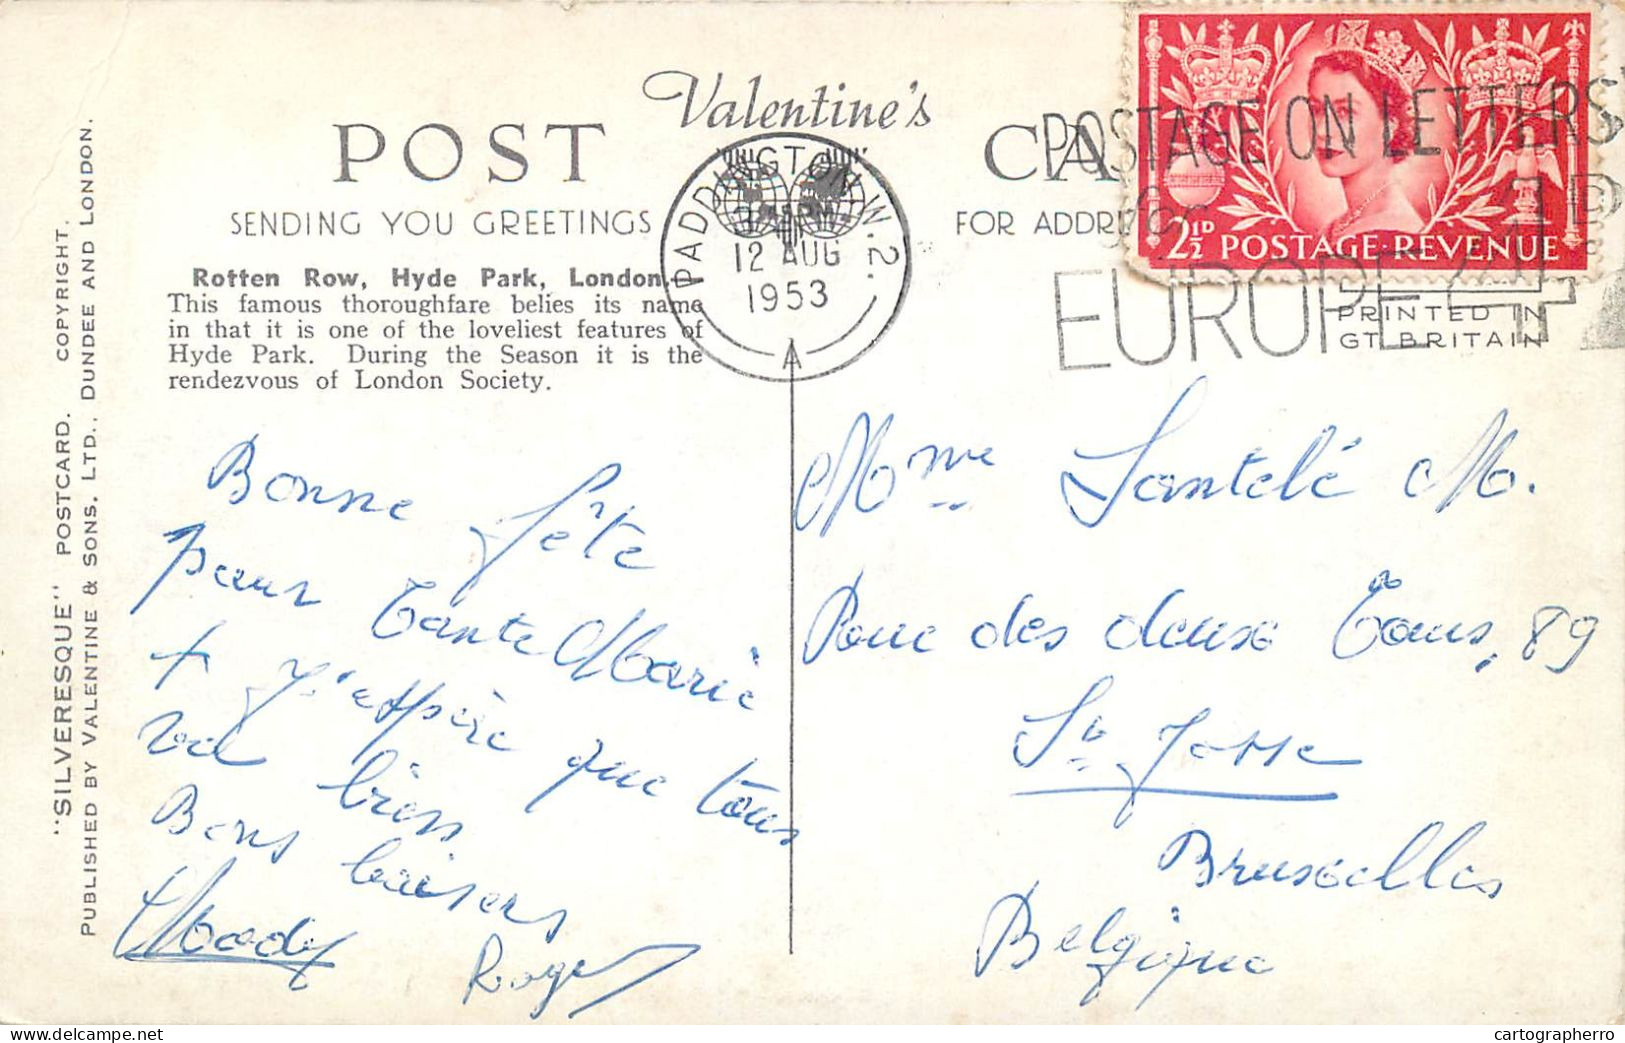 Valentine's
POST CA
SENDING YOU GREETINGS
FOR ADDRE
Rotten Row, Hyde Park, London.
This famous thoroughfare belies its name
in that it is one of the loveliest features of
Hyde Park. During the Season it is the
rendezvous of London Society.
"SILVERESQUE" POSTCARD. COPYRIGHT.
PUBLISHED BY VALENTINE & SONS, LTD., DUNDEE AND LONDON.
PADDINGTON. W.2.
12 AUG
1953
A
POSTAGE ON LETTERS
EUROPE 4D
2½D POSTAGE·REVENUE
PRINTED IN
GT. BRITAIN
Bonne fête
pour Tante Marie
+ J'espère que tous
va bien
Bons baisers
Roger
Mme Santelé M.
Rue des deux Tours, 89
St Josse
Bruxelles
Belgique
cartographerro